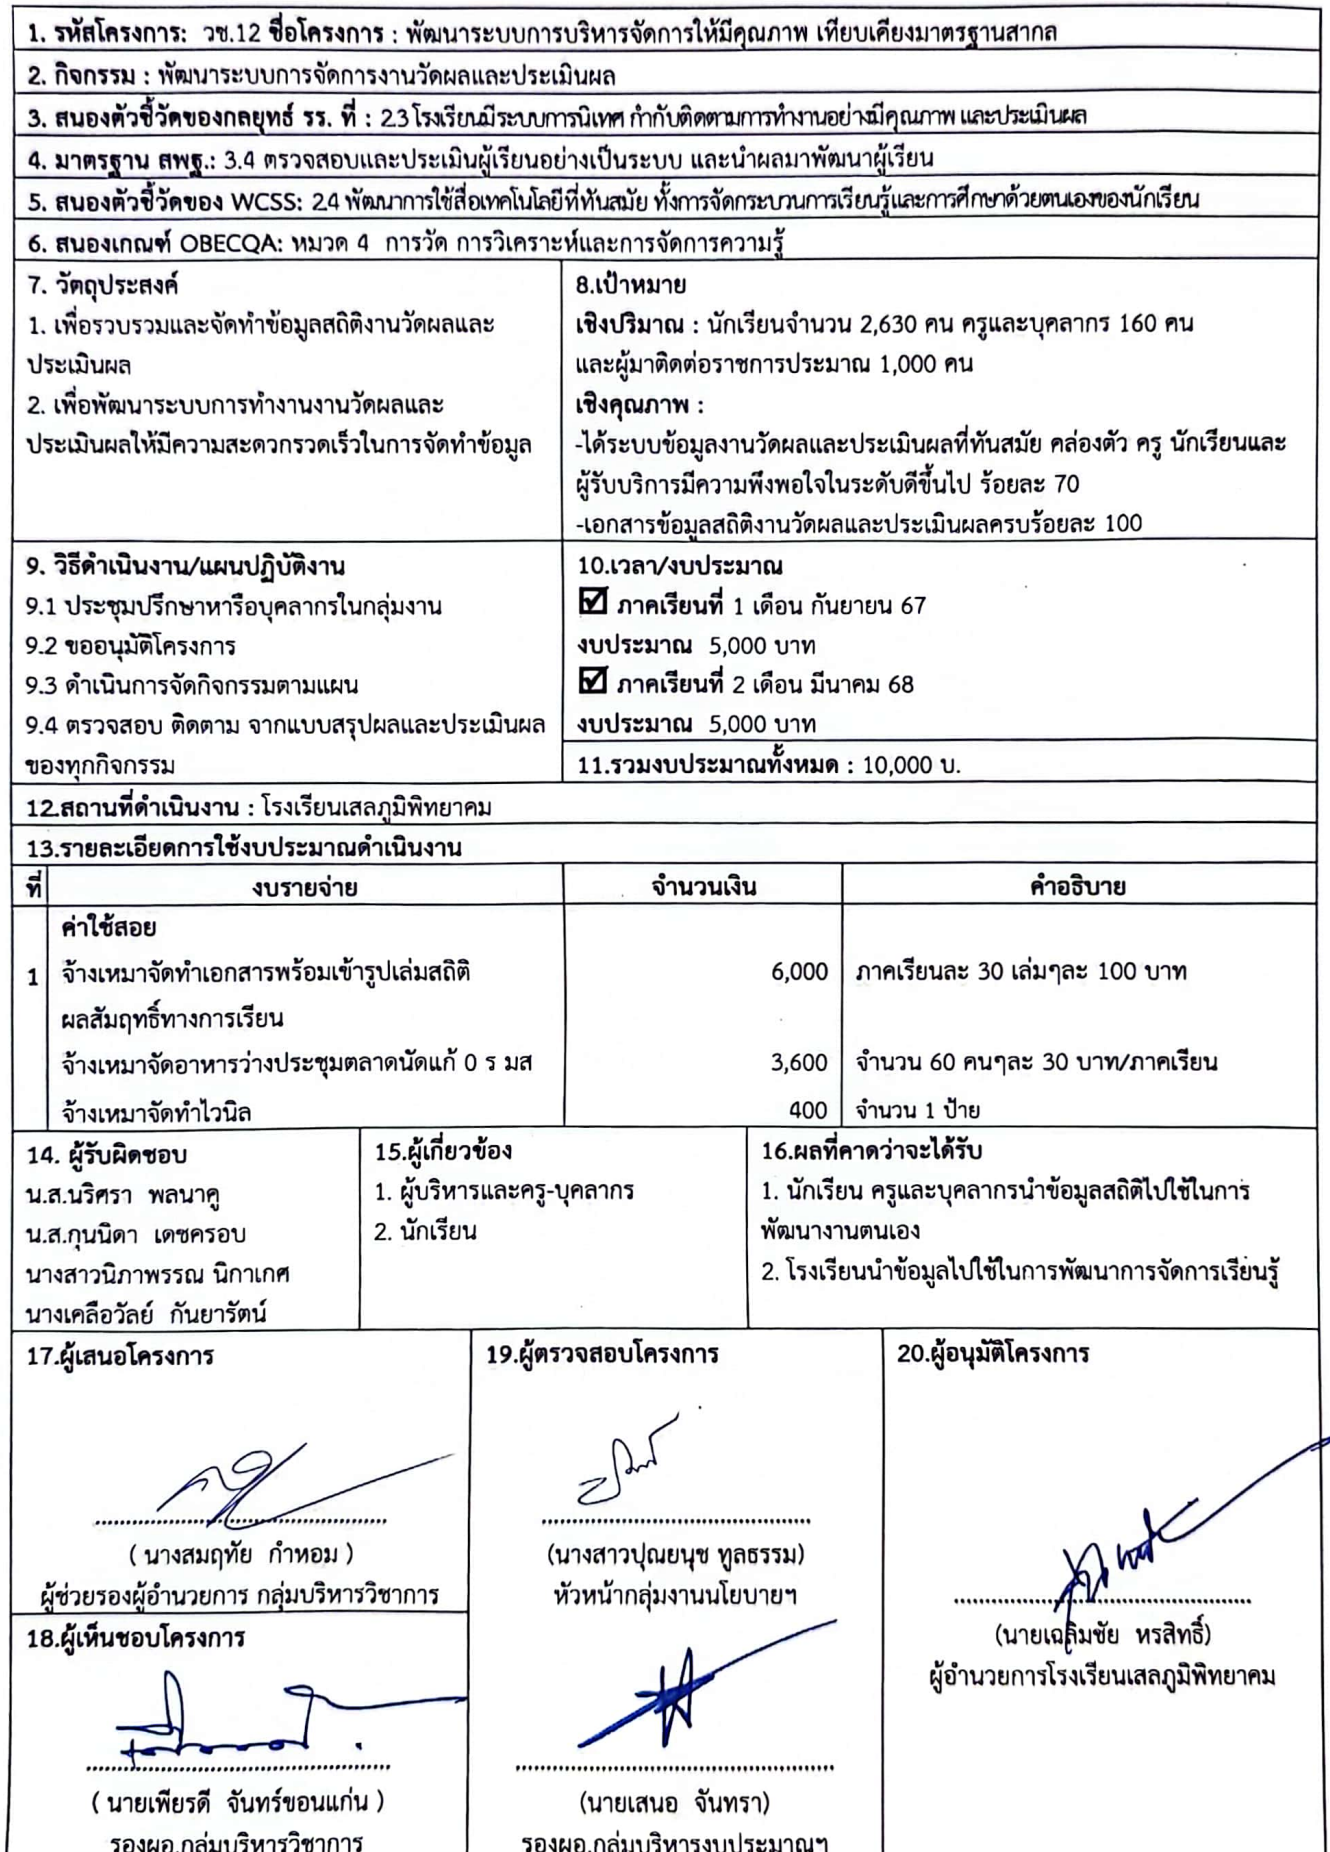 1. รหัสโครงการ: วช.12 ชื่อโครงการ : พัฒนาระบบการบริหารจัดการให้มีคุณภาพ เทียบเคียงมาตรฐานสากล
2. กิจกรรม : พัฒนาระบบการจัดการงานวัดผลและประเมินผล
3. สนองตัวชี้วัดของกลยุทธ์ รร. ที่ : 2.3 โรงเรียนมีระบบการนิเทศ กำกับติดตามการทำงานอย่างมีคุณภาพ และประเมินผล
4. มาตรฐาน สพฐ.: 3.4 ตรวจสอบและประเมินผู้เรียนอย่างเป็นระบบ และนำผลมาพัฒนาผู้เรียน
5. สนองตัวชี้วัดของ WCSS: 2.4 พัฒนาการใช้สื่อเทคโนโลยีที่ทันสมัย ทั้งการจัดกระบวนการเรียนรู้และการศึกษาด้วยตนเองของนักเรียน
6. สนองเกณฑ์ OBECQA: หมวด 4 การวัด การวิเคราะห์และการจัดการความรู้
7. วัตถุประสงค์
1. เพื่อรวบรวมและจัดทำข้อมูลสถิติงานวัดผลและ
ประเมินผล
2. เพื่อพัฒนาระบบการทำงานงานวัดผลและ
ประเมินผลให้มีความสะดวกรวดเร็วในการจัดทำข้อมูล
8.เป้าหมาย
เชิงปริมาณ : นักเรียนจำนวน 2,630 คน ครูและบุคลากร 160 คน
และผู้มาติดต่อราชการประมาณ 1,000 คน
เชิงคุณภาพ :
-ได้ระบบข้อมูลงานวัดผลและประเมินผลที่ทันสมัย คล่องตัว ครู นักเรียนและ
ผู้รับบริการมีความพึงพอใจในระดับดีขึ้นไป ร้อยละ 70
-เอกสารข้อมูลสถิติงานวัดผลและประเมินผลครบร้อยละ 100
9. วิธีดำเนินงาน/แผนปฏิบัติงาน
9.1 ประชุมปรึกษาหารือบุคลากรในกลุ่มงาน
9.2 ขออนุมัติโครงการ
9.3 ดำเนินการจัดกิจกรรมตามแผน
9.4 ตรวจสอบ ติดตาม จากแบบสรุปผลและประเมินผล
ของทุกกิจกรรม
10.เวลา/งบประมาณ
☑ ภาคเรียนที่ 1 เดือน กันยายน 67
งบประมาณ 5,000 บาท
☑ ภาคเรียนที่ 2 เดือน มีนาคม 68
งบประมาณ 5,000 บาท
11.รวมงบประมาณทั้งหมด : 10,000 บ.
12.สถานที่ดำเนินงาน : โรงเรียนเสลภูมิพิทยาคม
13.รายละเอียดการใช้งบประมาณดำเนินงาน
ที่ งบรายจ่าย จำนวนเงิน คำอธิบาย
ค่าใช้สอย
1 จ้างเหมาจัดทำเอกสารพร้อมเข้ารูปเล่มสถิติ 6,000 ภาคเรียนละ 30 เล่มๆละ 100 บาท
ผลสัมฤทธิ์ทางการเรียน
จ้างเหมาจัดอาหารว่างประชุมตลาดนัดแก้ 0 ร มส 3,600 จำนวน 60 คนๆละ 30 บาท/ภาคเรียน
จ้างเหมาจัดทำไวนิล 400 จำนวน 1 ป้าย
14. ผู้รับผิดชอบ
น.ส.นริศรา พลนาคู
น.ส.กุนนิดา เดชครอบ
นางสาวนิภาพรรณ นิกาเกศ
นางเคลือวัลย์ กันยารัตน์
15.ผู้เกี่ยวข้อง
1. ผู้บริหารและครู-บุคลากร
2. นักเรียน
16.ผลที่คาดว่าจะได้รับ
1. นักเรียน ครูและบุคลากรนำข้อมูลสถิติไปใช้ในการ
พัฒนางานตนเอง
2. โรงเรียนนำข้อมูลไปใช้ในการพัฒนาการจัดการเรียนรู้
17.ผู้เสนอโครงการ
( นางสมฤทัย กำหอม )
ผู้ช่วยรองผู้อำนวยการ กลุ่มบริหารวิชาการ
18.ผู้เห็นชอบโครงการ
( นายเพียรดี จันทร์ขอนแก่น )
รองผอ.กลุ่มบริหารวิชาการ
19.ผู้ตรวจสอบโครงการ
(นางสาวปุณยนุช ทูลธรรม)
หัวหน้ากลุ่มงานนโยบายฯ
(นายเสนอ จันทรา)
รองผอ.กลุ่มบริหารงบประมาณฯ
20.ผู้อนุมัติโครงการ
(นายเฉลิมชัย หรสิทธิ์)
ผู้อำนวยการโรงเรียนเสลภูมิพิทยาคม